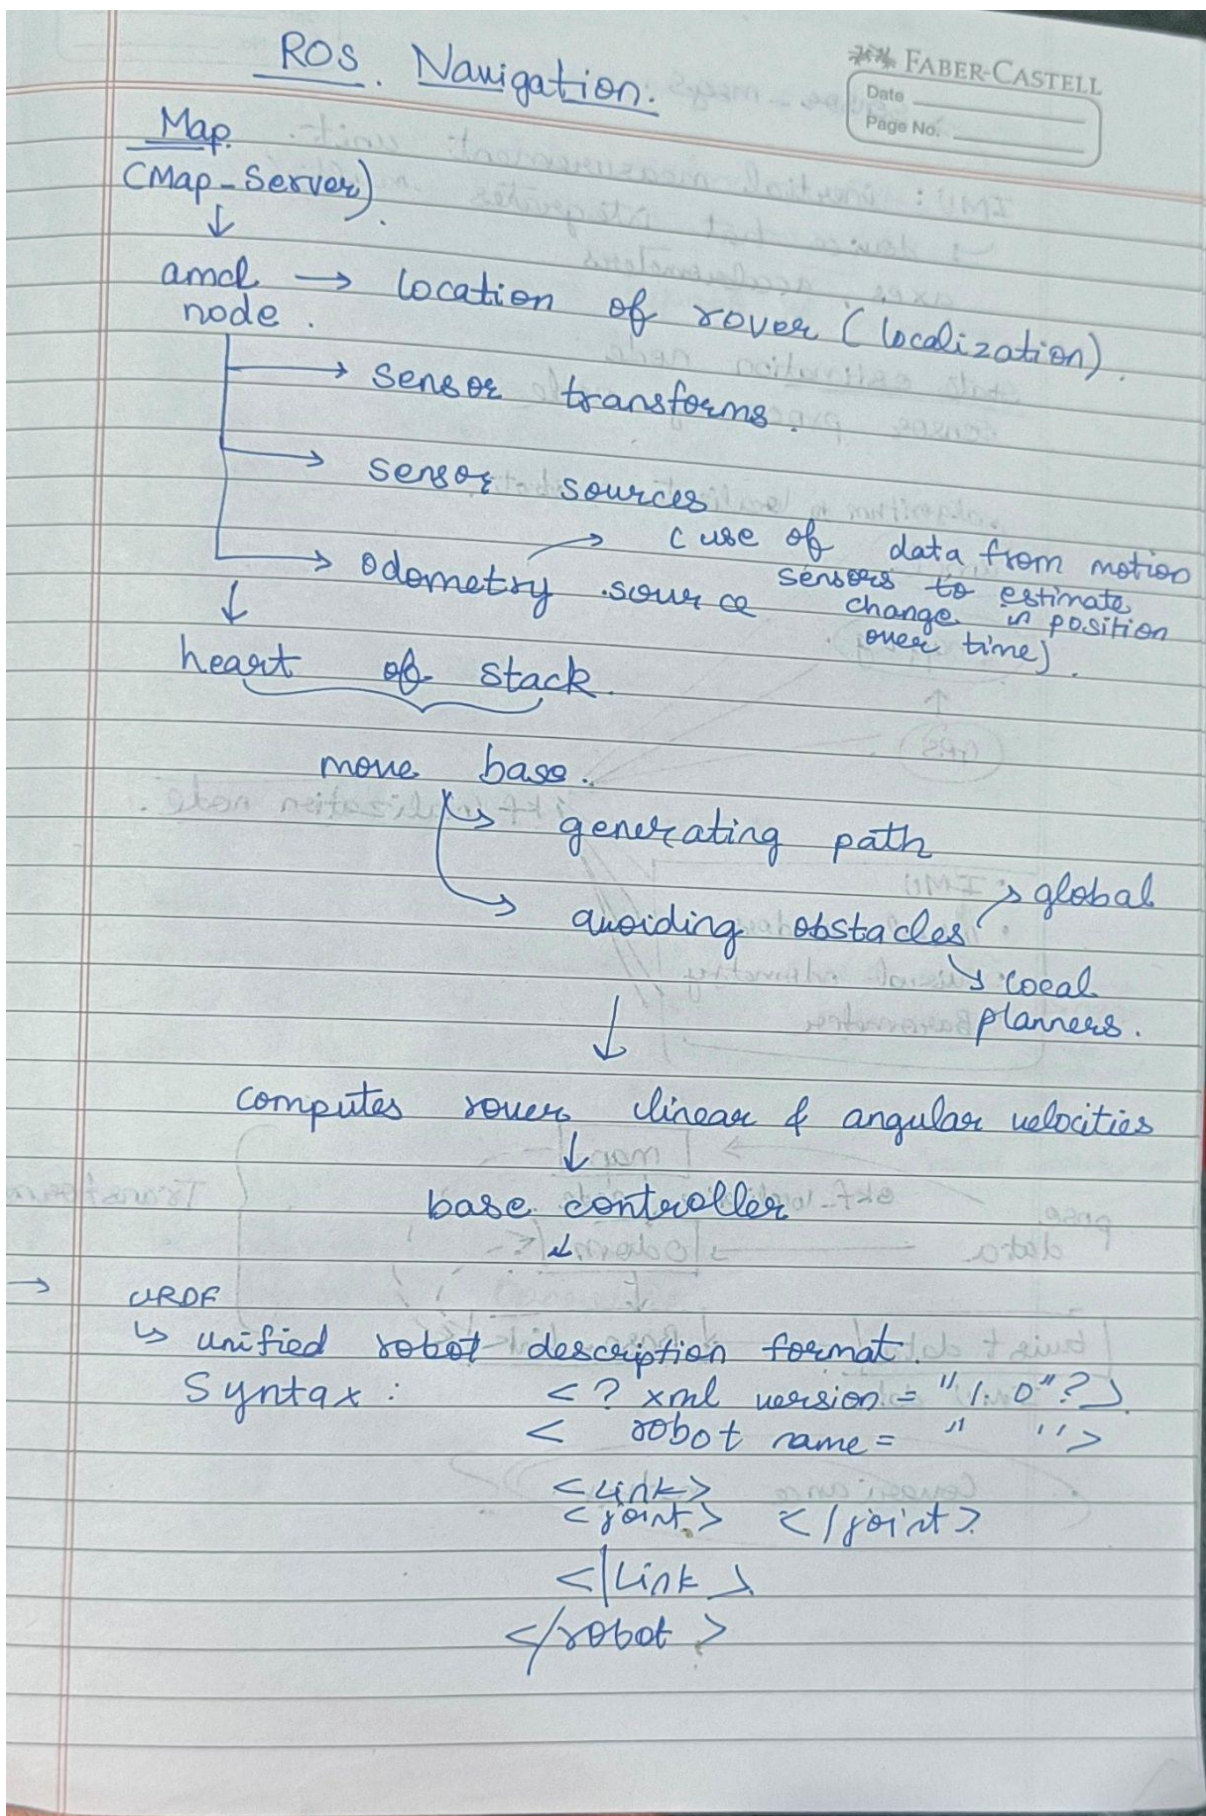 ROS. Navigation.
FABER-CASTELL
Date
Page No.
Map.
(Map-Server).
↓
amcl → location of rover (localization).
node.
→ sensor transforms.
→ sensor sources
→ odometry source → (use of data from motion
sensors to estimate
change in position
over time).
↓
heart of stack.
move base.
↳ generating path
↳ avoiding obstacles ↗ global
↘ local
planners.
↓
computes rover linear & angular velocities
↓
base controller
↓
→ URDF
↳ unified robot description format.
Syntax : <? xml version = "1.0"?>
< robot name = " ">
<Link>
<joint> </joint>
</Link>
</robot>